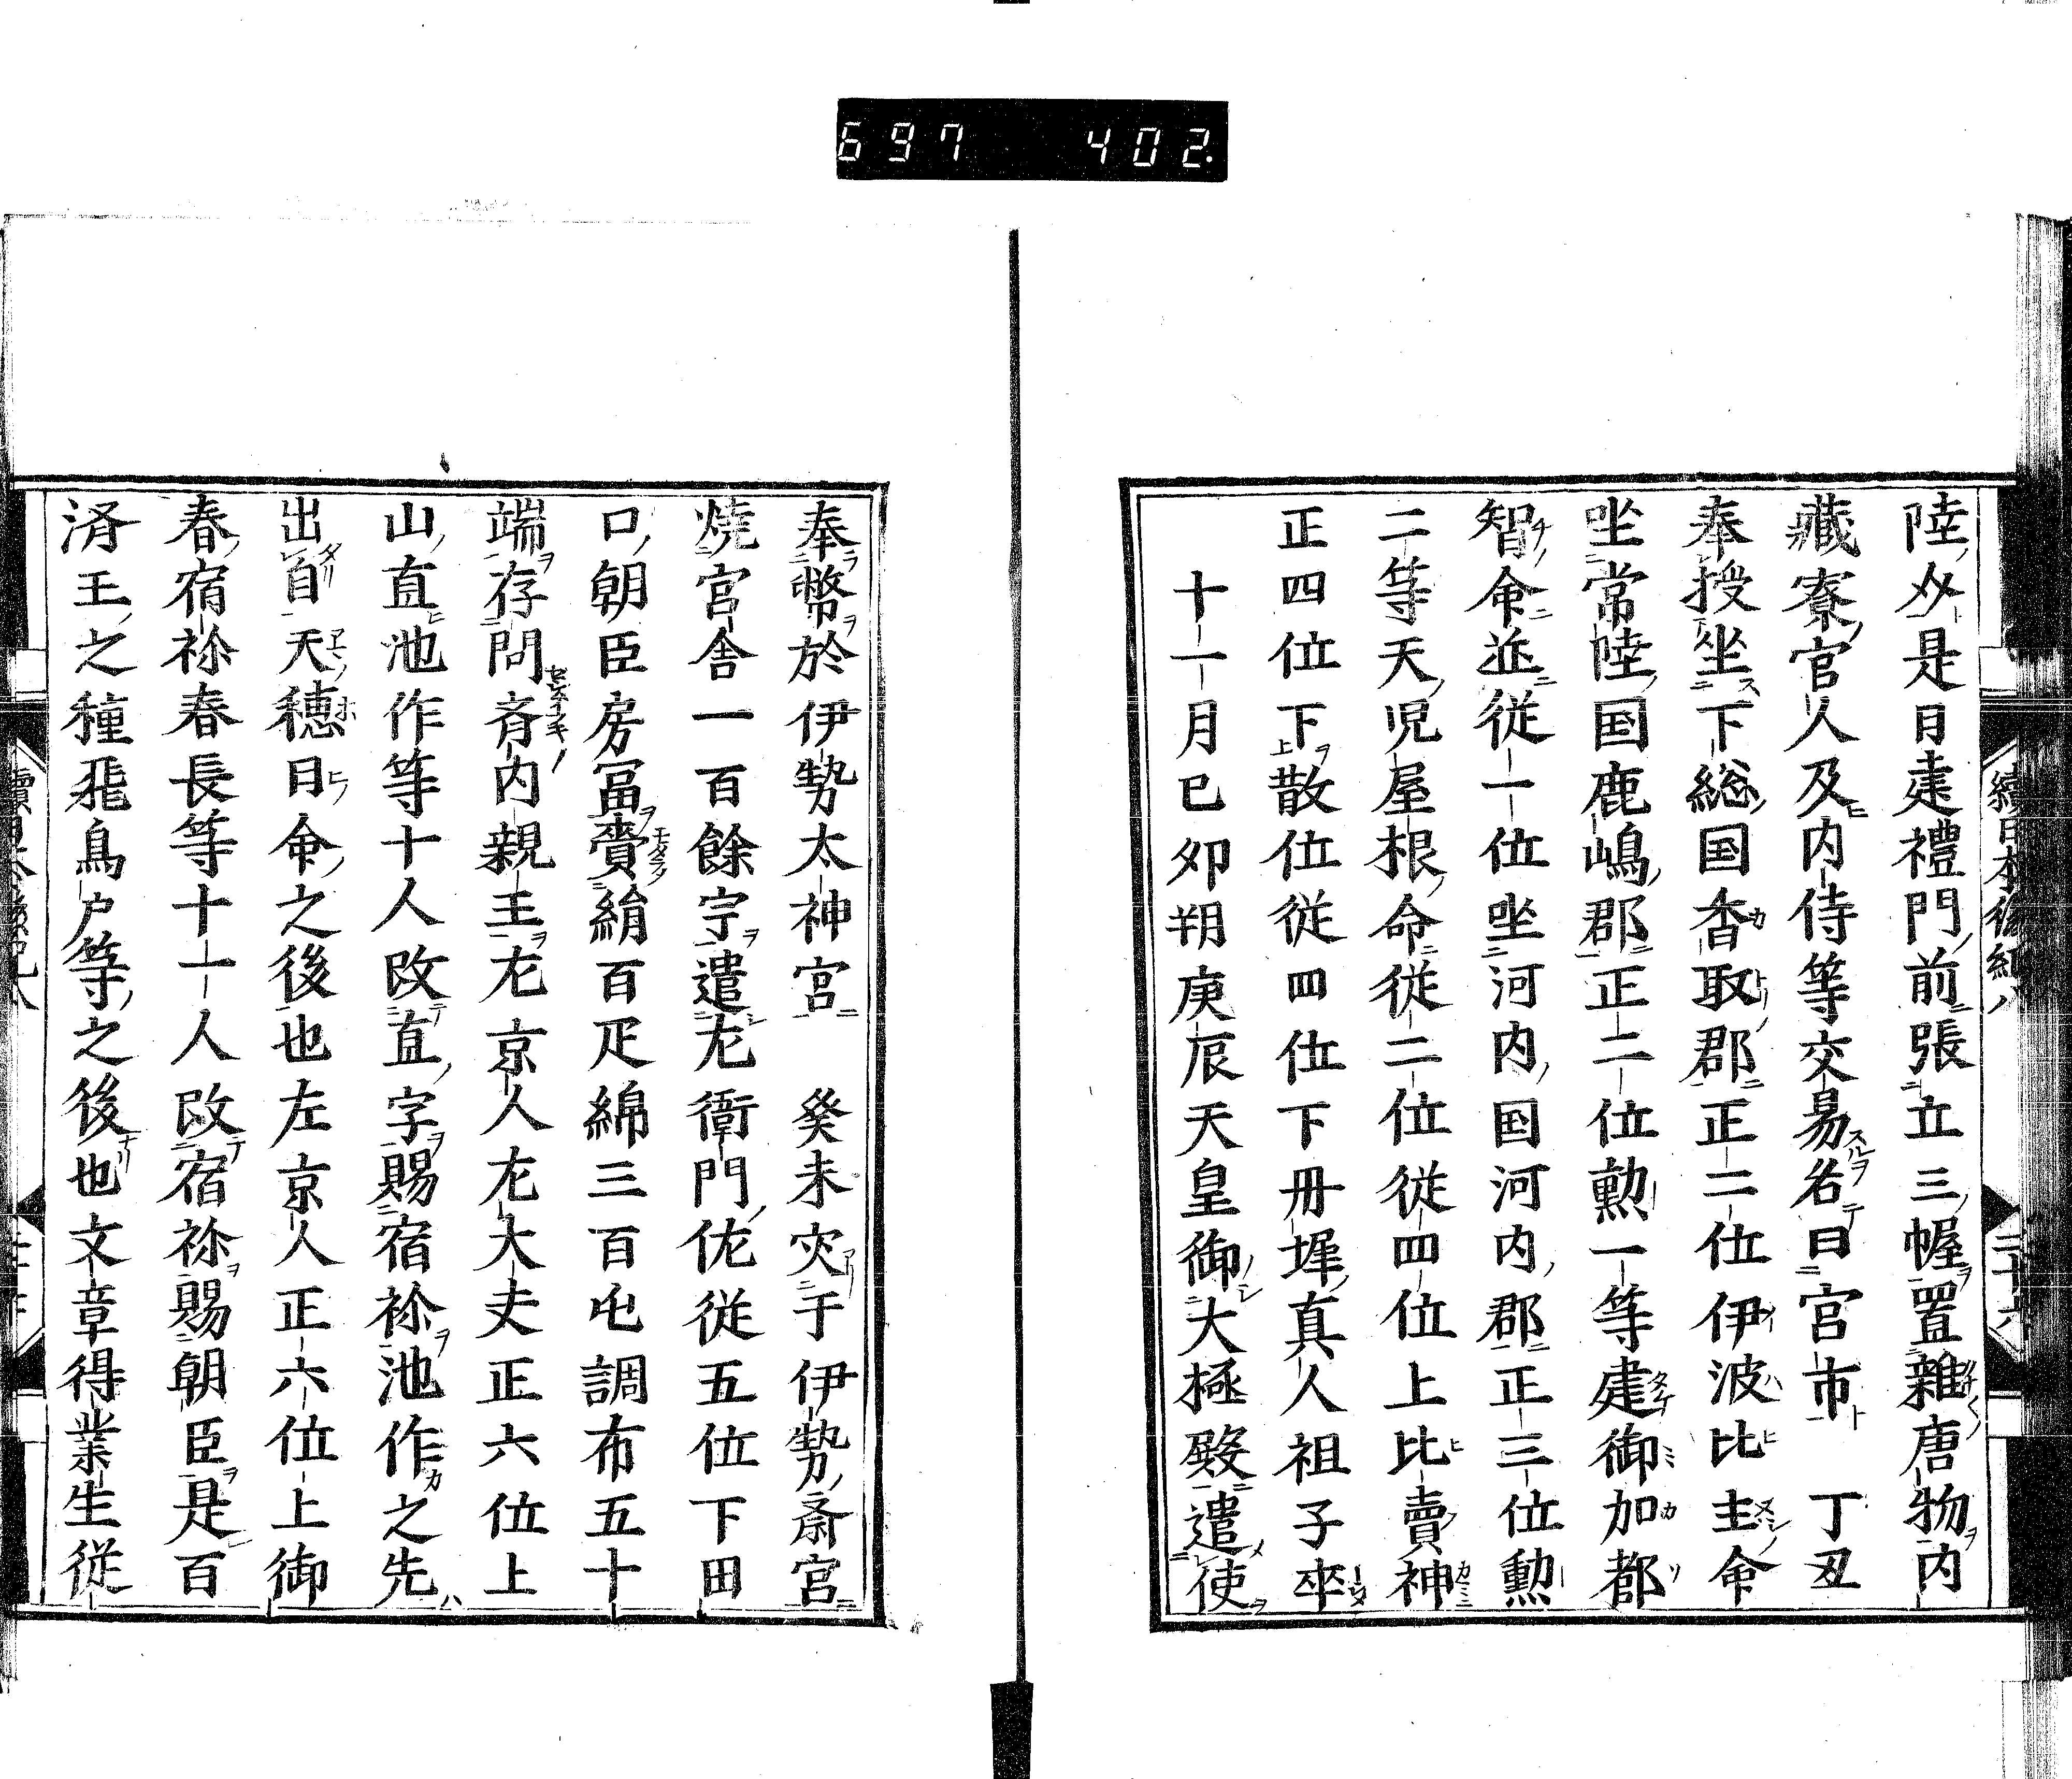 697 402.
續日本後紀八
二十六
陸奥是日建禮門前張立三幄置雜唐物内
藏寮官人及内侍等交易名曰宮市　丁丑
奉授坐下総国香取郡正二位伊波比主命
坐常陸国鹿嶋郡正二位勲一等建御加都
智命並従一位坐河内国河内郡正三位勲
二等天児屋根命従二位従四位上比賣神
正四位下散位従四位下丹墀真人祖子卒
十一月己卯朔庚辰天皇御大極殿遣使
奉幣於伊勢太神宮　癸未灾于伊勢斎宮
焼宮舎一百餘宇遣左衛門佐従五位下田
口朝臣房冨賫絹百疋綿三百屯調布五十
端存問斉内親王左京人左大史正六位上
山直池作等十人改直字賜宿祢池作之先
出自天穂日命之後也左京人正六位上御
春宿祢春長等十一人改宿祢賜朝臣是百
済王之種飛鳥戸等之後也文章得業生従